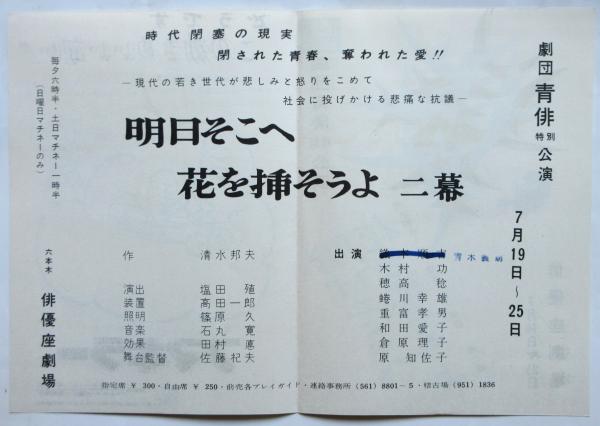 劇団 青俳 特別 公演
7月19日〜25日
時代閉塞の現実
閉された青春、奪われた愛!!
—現代の若き世代が悲しみと怒りをこめて
社会に投げかける悲痛な抗議—
明日そこへ
花を挿そうよ 二幕
作 清水邦夫
演出 塩田殖
装置 高田一郎
照明 篠原久
音楽 石丸寛
効果 田村悳
舞台監督 佐藤紀夫
出演
青木義朗
木村功
穂高稔
蜷川幸雄
重富孝男
和田愛子
倉原理子
原知佐子
毎夕六時半・土日マチネー一時半
(日曜日マチネーのみ)
六本木 俳優座劇場
指定席 ¥ 300・自由席 ¥ 250・前売各プレイガイド・連絡事務所 (561) 8801〜5・稽古場 (951) 1836